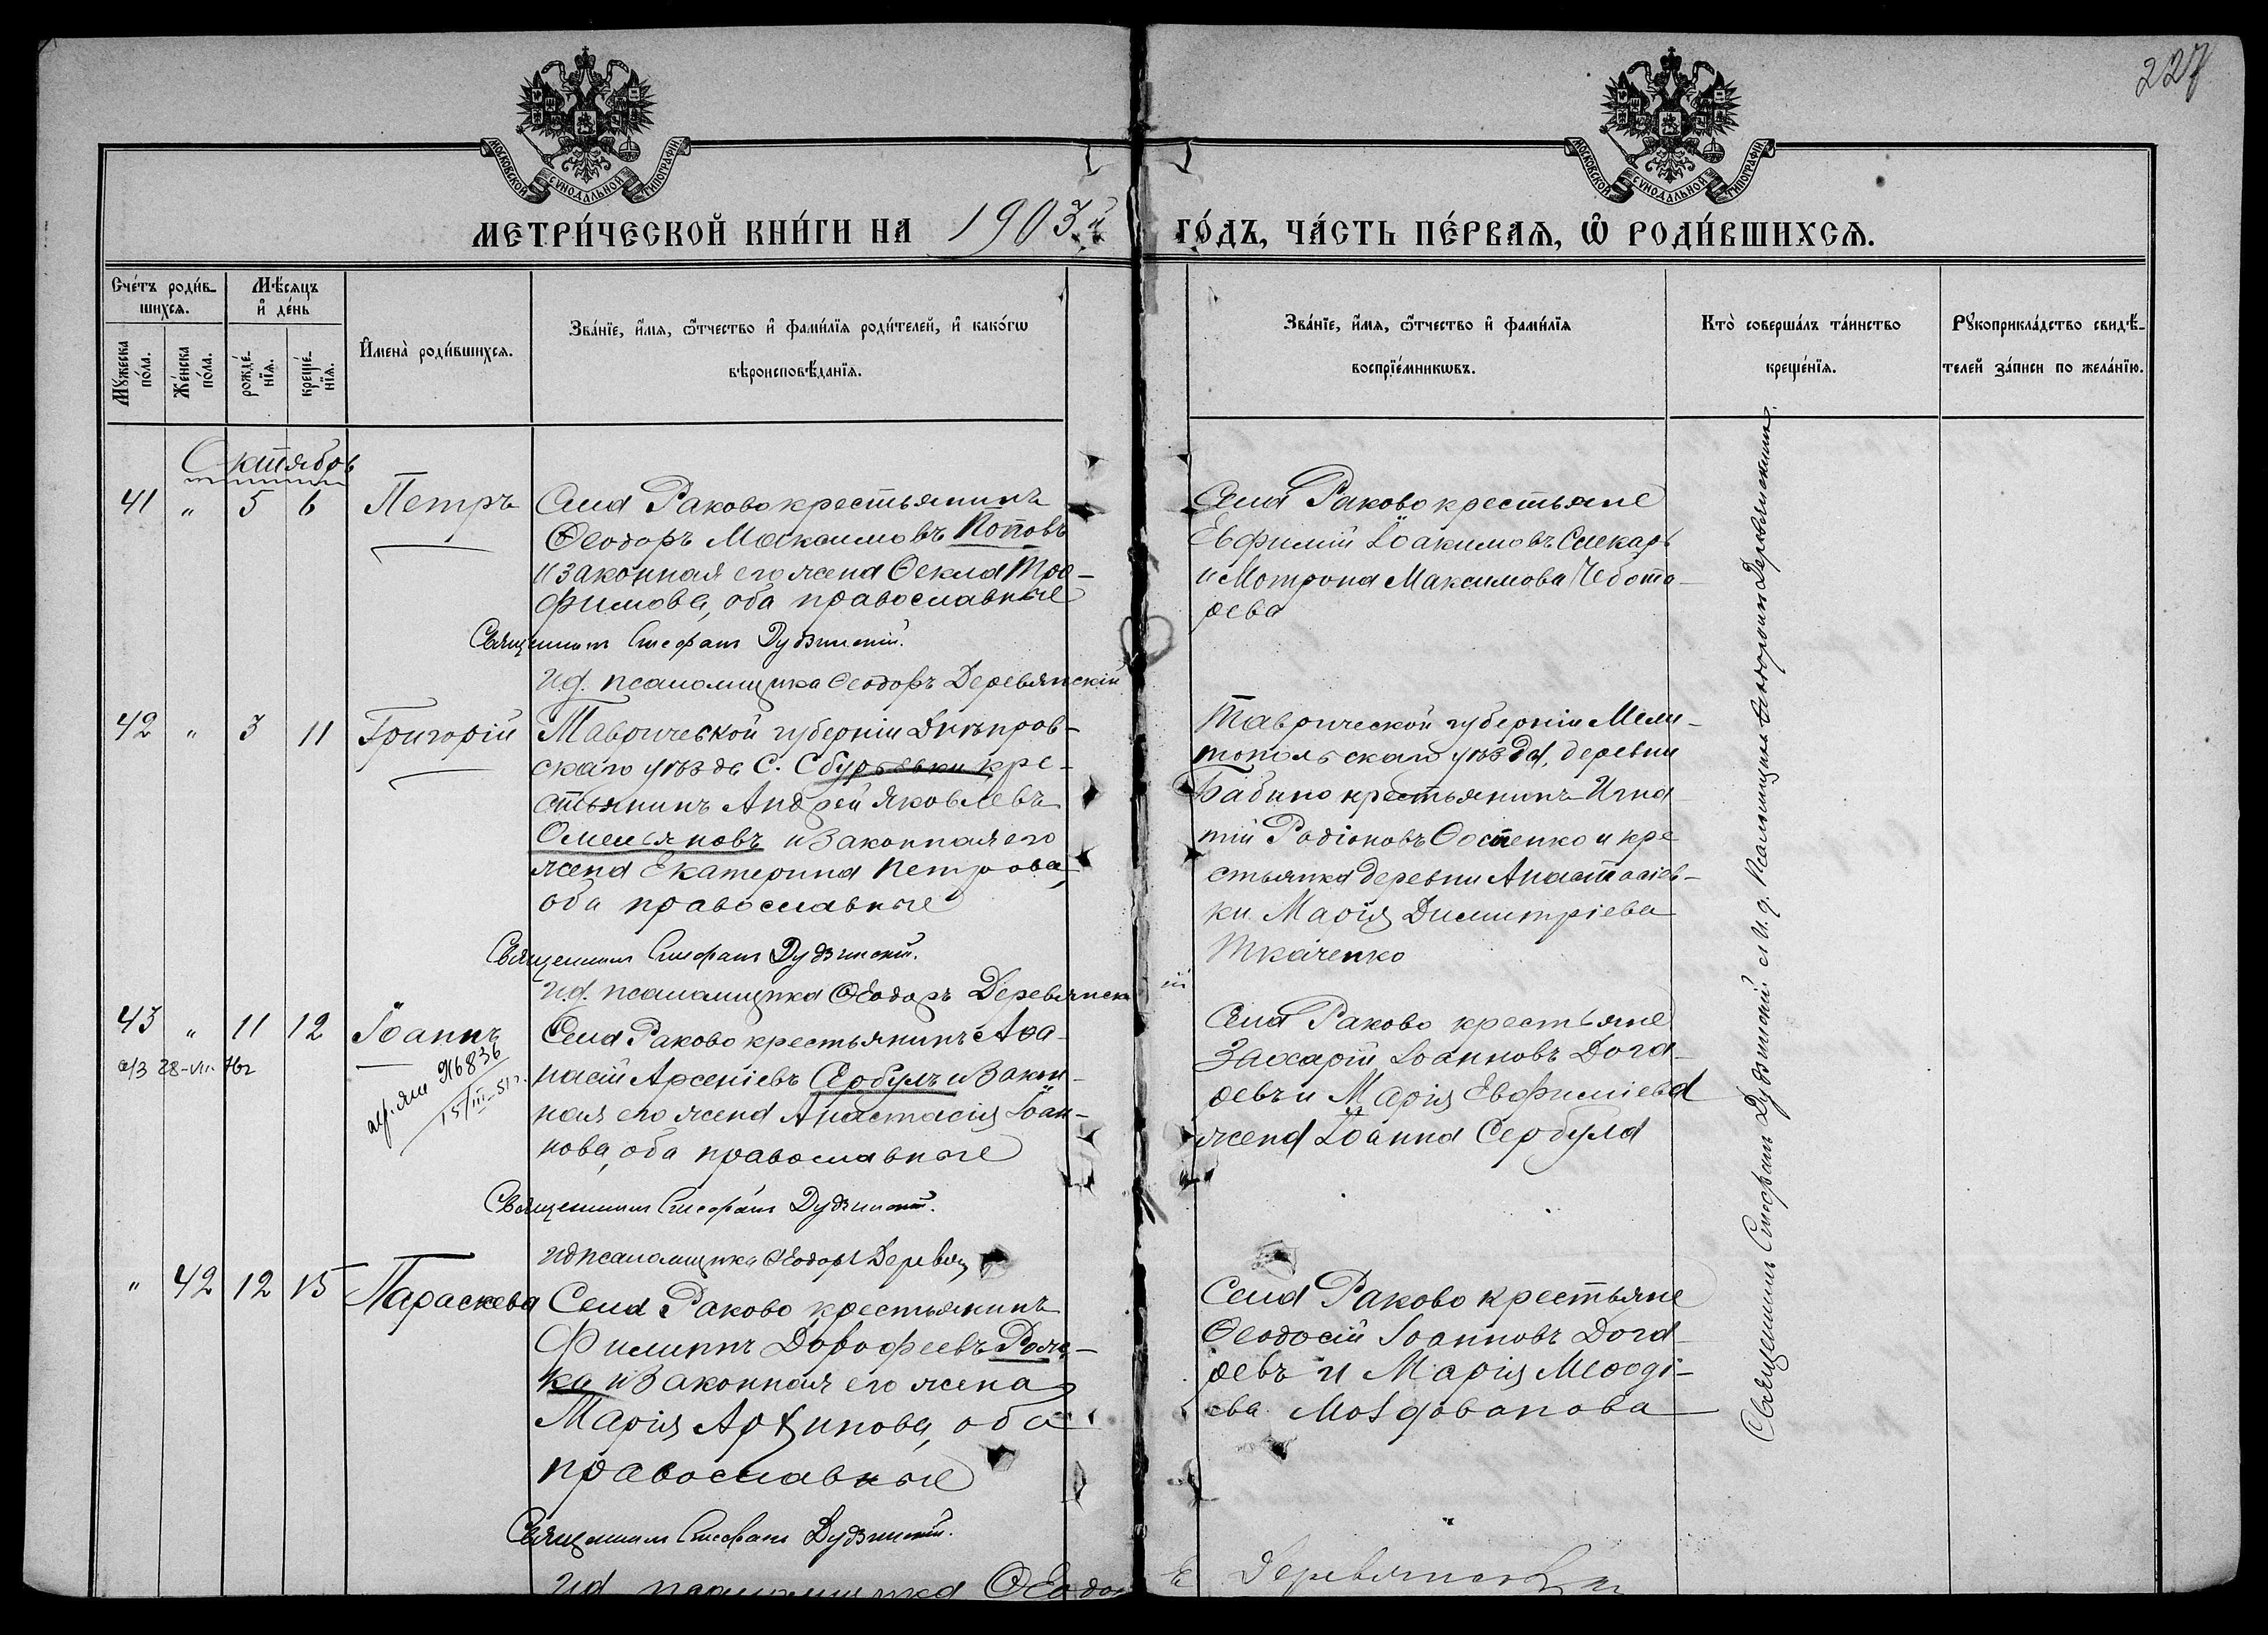 227
МОСКОВСКОЙ СѴНОДАЛЬНОЙ ТИПОГРАФІИ
МОСКОВСКОЙ СѴНОДАЛЬНОЙ ТИПОГРАФІИ
МЕТРИ́ЧЕСКОЙ КНИ́ГИ НА 1903й ГО́ДЪ, ЧА́СТЬ ПЕ́РВАЯ, Ѡ҆ РОДИ́ВШИХСЯ.
Сче́тъ роди́в-
шихсѧ.
Мѣ́сѧцъ
и҆ де́нь
Мꙋ́жеска по́ла.
Же́нска по́ла.
рожде́-нїѧ.
креще́-нїѧ.
И҆мена̀ роди́вшихсѧ.
Зва́нїе, и҆́мѧ, ѻ҆́тчество и҆ фами́лїѧ роди́телей, и҆ како́гѡ
вѣроисповѣ́данїѧ.
Зва́нїе, и҆́мѧ, ѻ҆́тчество и҆ фами́лїѧ
воспрїе́мникѡвъ.
Кто̀ соверша́лъ та́инство
креще́нїѧ.
Рꙋкоприкла́дство свидѣ́-
телей за́писи по жела́нїю.
Октябрь
41 " 5 6 Петръ
Села Раково крестьянинъ
Ѳеодоръ Максимовъ Поповъ
и законная его жена Ѳекла Тро-
фимова, оба православные
Священникъ Стефанъ Дудзинскій.
И.д. псаломщика Ѳеодоръ Деревянскій
Села Раково крестьяне
Евфимій Іоакимовъ Слекарь
и Мотрона Максимова Чебота-
рева
42 " 3 11 Григорій
Таврической губерніи Днѣпров-
скаго уѣзда С. Сбурьевки кре-
стьянинъ Андрей Яковлевъ
Омельяновъ и законная его
жена Екатерина Петрова,
оба православные
Священникъ Стефанъ Дудзинскій.
И.д. псаломщика Ѳеодоръ Деревянскій
Таврической губерніи Мели-
топольскаго уѣзда, деревни
Бабино крестьянинъ Игна-
тій Родіоновъ Остенко и кре
стьянка деревни Анастасіев-
ки Марія Димитріева
Ткаченко
43 " 11 12 Іоаннъ
а/з 28-VII-76г
№6836
15/III-51г.
Села Раково крестьянинъ Аѳа-
насій Арсеніевъ Сербулъ и закон-
ная его жена Анастасія Іоан-
нова, оба православные
Священникъ Стефанъ Дудзинскій.
И д псаломщика Ѳеодоръ Деревян
Села Раково крестьяне
Захарій Іоанновъ Дога-
ревъ и Марія Евфиміева
жена Іоанна Сербула
" 42 12 15 Параскева
Села Раково крестьянинъ
Филиппъ Дорофеевъ
ка и законная его жена
Марія Архипова, оба
православные
Священникъ Стефанъ Дудзинскій.
И д псаломщика Ѳеодоръ Деревянскій
Села Раково крестьяне
Ѳеодосій Іоанновъ Дога-
ревъ и Марія Меѳоді-
ева Молдованова
Священникъ Стефанъ Дудзинскій съ И. д. Псаломщика Ѳеодоромъ Деревянскимъ.